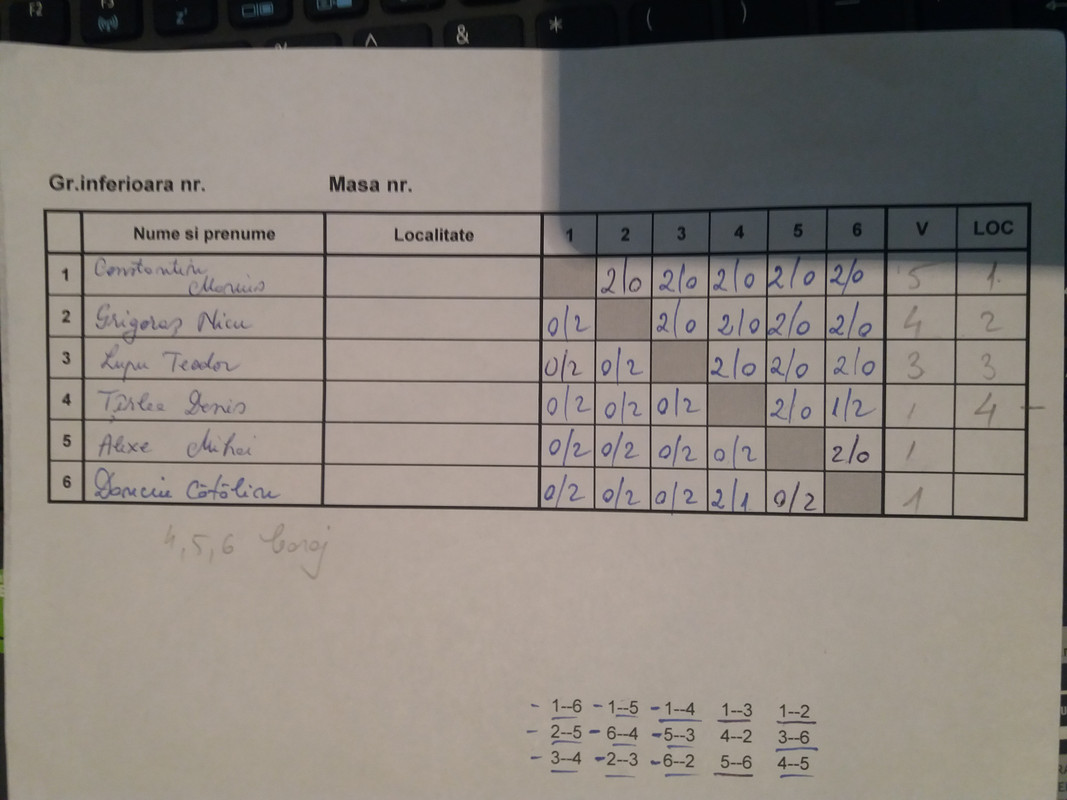 F2 F3 z'
^ & * ( )
Gr.inferioara nr. Masa nr.
Nume si prenume Localitate 1 2 3 4 5 6 V LOC
1 Constantin Marius 2/0 2/0 2/0 2/0 2/0 5 1
2 Grigoraș Nicu 0/2 2/0 2/0 2/0 2/0 4 2
3 Lupu Teodor 0/2 0/2 2/0 2/0 2/0 3 3
4 Țîrlea Denis 0/2 0/2 0/2 2/0 1/2 1 4 -
5 Alexe Mihai 0/2 0/2 0/2 0/2 2/0 1
6 Cătălin 0/2 0/2 0/2 2/1 0/2 1
4,5,6 baraj
- 1--6 - 1--5 - 1--4 1--3 1--2
- 2--5 - 6--4 - 5--3 4--2 3--6
- 3--4 - 2--3 - 6--2 5--6 4--5